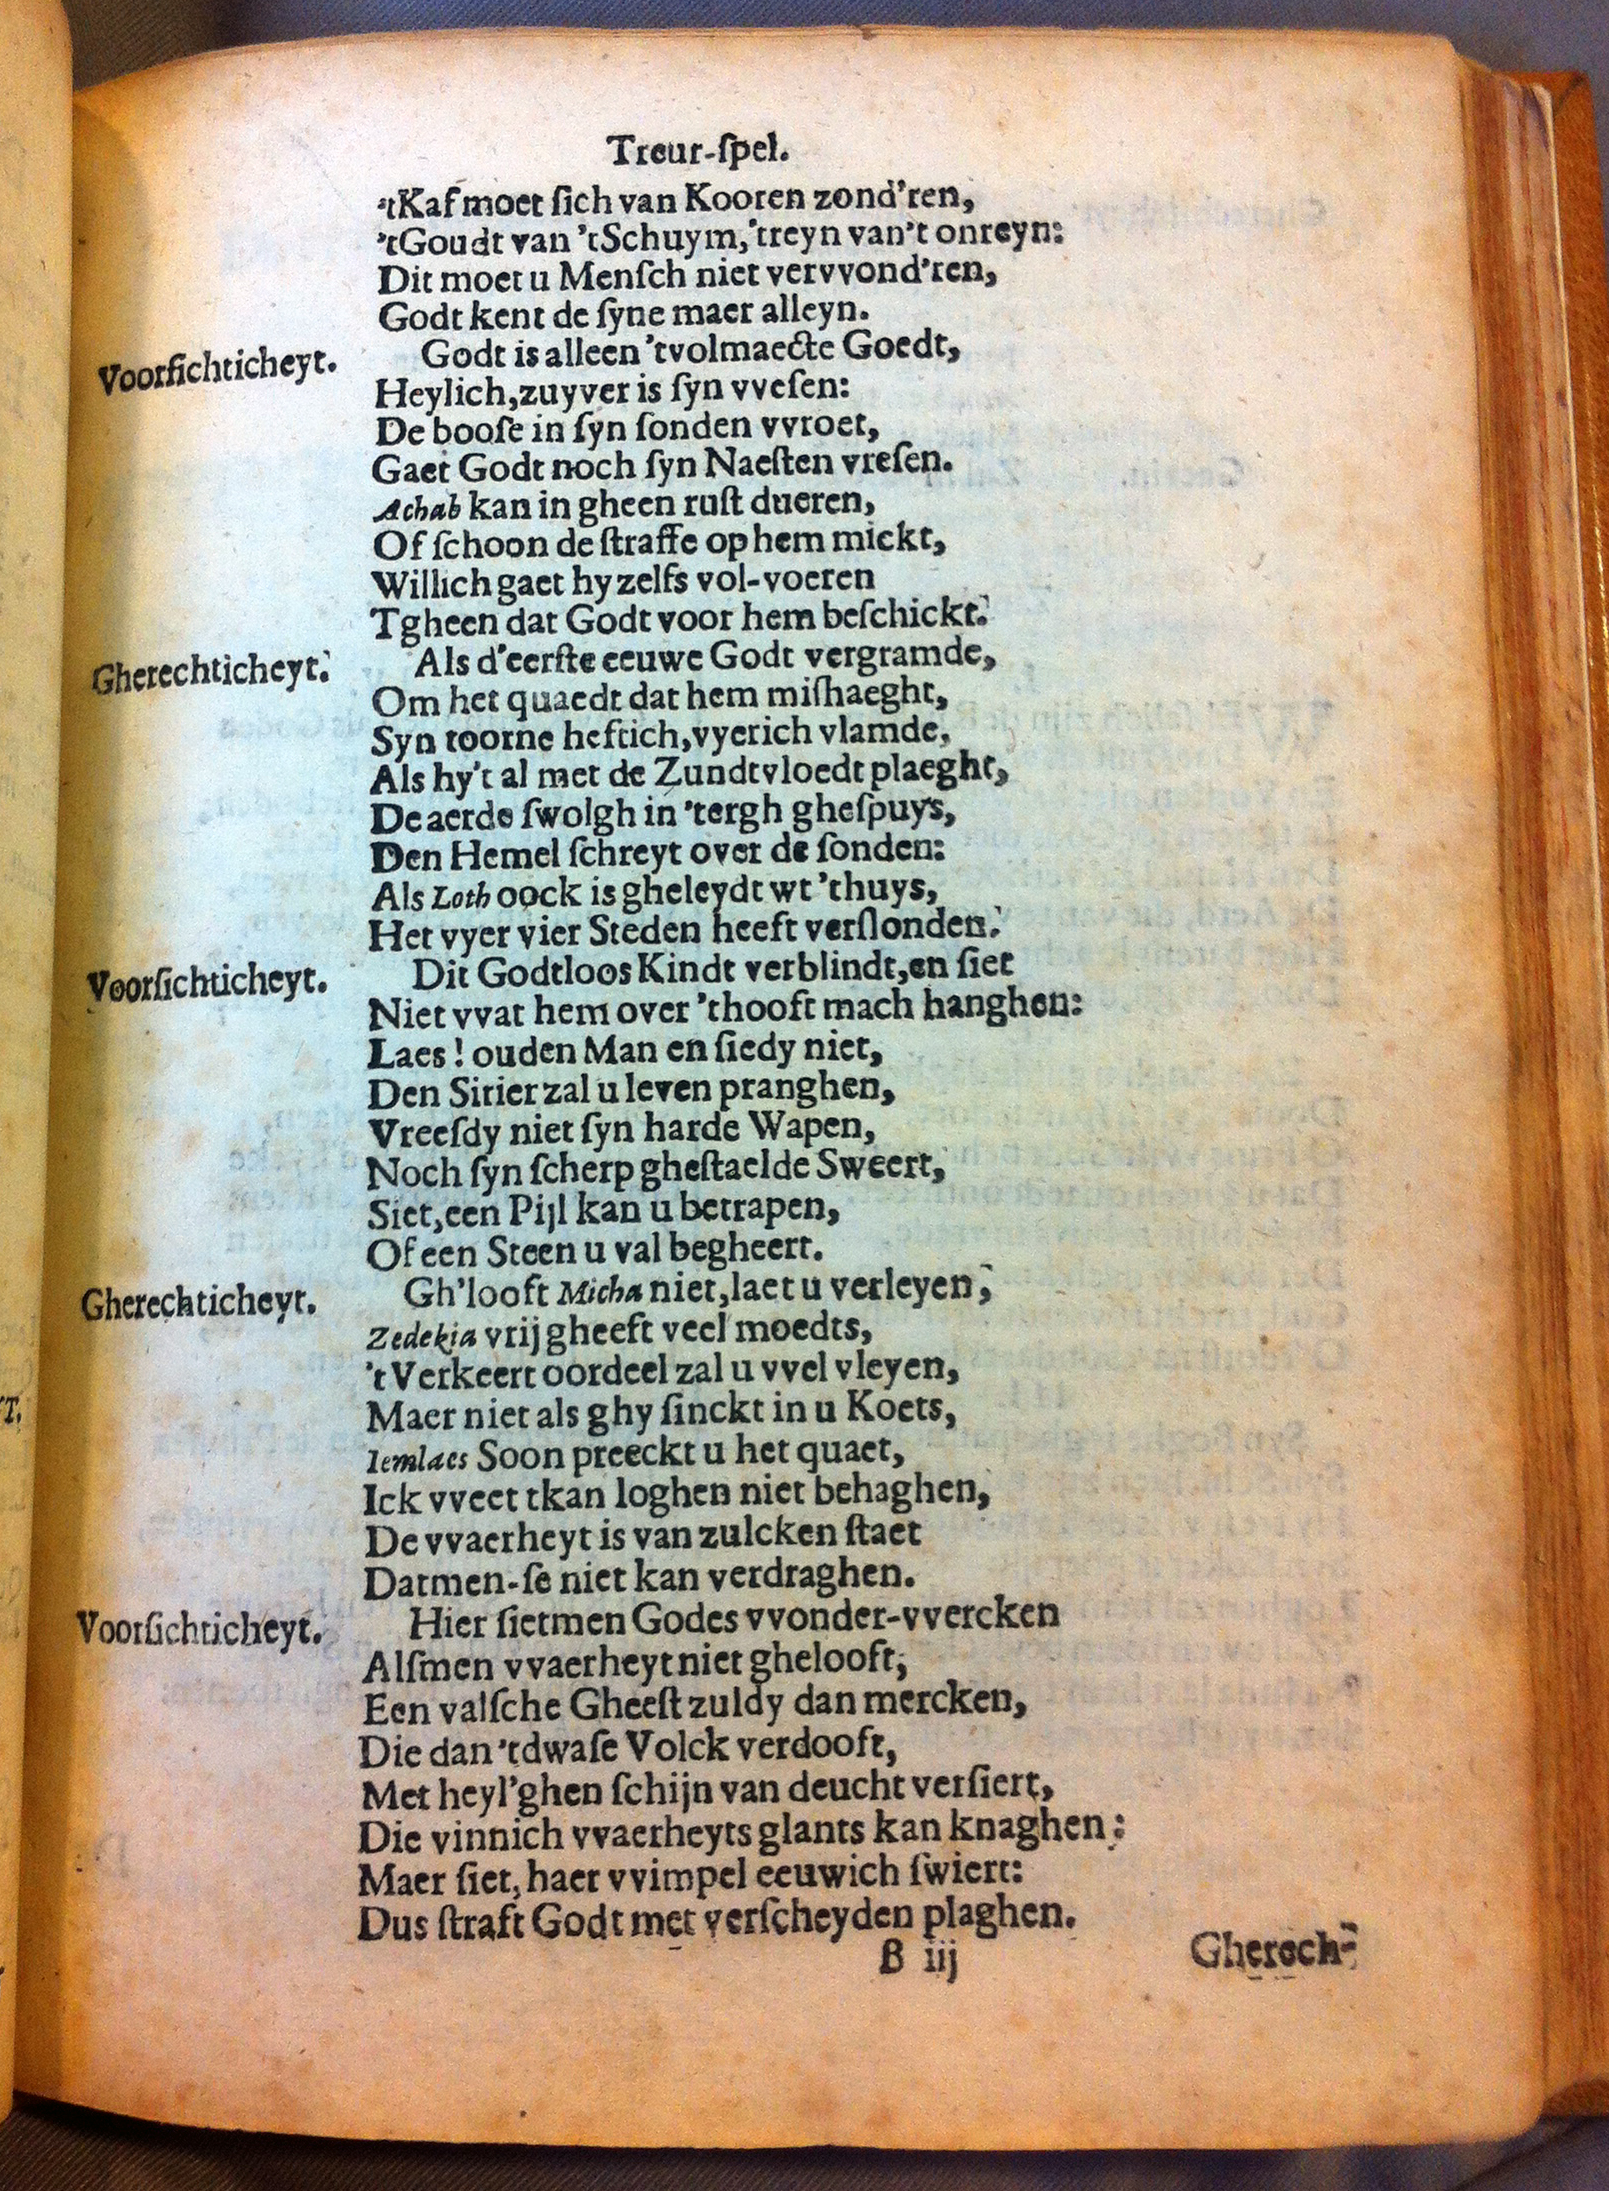 Treur-ſpel.
'tKaf moet ſich van Kooren zond'ren,
'tGoudt van 'tSchuym,'treyn van't onreyn:
Dit moet u Menſch niet vervvond'ren,
Godt kent de ſyne maer alleyn.
Voorſichticheyt. Godt is alleen 'tvolmaecte Goedt,
Heylich,zuyver is ſyn vveſen:
De booſe in ſyn ſonden vvroet,
Gaet Godt noch ſyn Naeſten vreſen.
Achab kan in gheen ruſt dueren,
Of ſchoon de ſtraffe op hem mickt,
Willich gaet hy zelfs vol-voeren
Tgheen dat Godt voor hem beſchickt.
Gherechticheyt. Als d'eerſte eeuwe Godt vergramde,
Om het quaedt dat hem miſhaeght,
Syn toorne heftich,vyerich vlamde,
Als hy't al met de Zundtvloedt plaeght,
De aerde ſwolgh in 'tergh gheſpuys,
Den Hemel ſchreyt over de ſonden:
Als Loth oock is gheleydt wt 'thuys,
Het vyer vier Steden heeft verſlonden.
Voorſichticheyt. Dit Godtloos Kindt verblindt,en ſiet
Niet vvat hem over 'thooft mach hanghen:
Laes! ouden Man en ſiedy niet,
Den Sirier zal u leven pranghen,
Vreeſdy niet ſyn harde Wapen,
Noch ſyn ſcherp gheſtaelde Sweert,
Siet,een Pijl kan u betrapen,
Of een Steen u val begheert.
Gherechticheyt. Gh'looft Micha niet,laet u verleyen,
Zedekia vrij gheeft veel moedts,
't Verkeert oordeel zal u vvel vleyen,
Maer niet als ghy ſinckt in u Koets,
Iemlaes Soon preeckt u het quaet,
Ick vveet tkan loghen niet behaghen,
De vvaerheyt is van zulcken ſtaet
Datmen-ſe niet kan verdraghen.
Voorſichticheyt. Hier ſietmen Godes vvonder-vvercken
Alſmen vvaerheyt niet ghelooft,
Een valſche Gheeſt zuldy dan mercken,
Die dan 'tdwaſe Volck verdooft,
Met heyl'ghen ſchijn van deucht verſiert,
Die vinnich vvaerheyts glants kan knaghen:
Maer ſiet, haer vvimpel eeuwich ſwiert:
Dus ſtraft Godt met verſcheyden plaghen.
B iij Gherech-